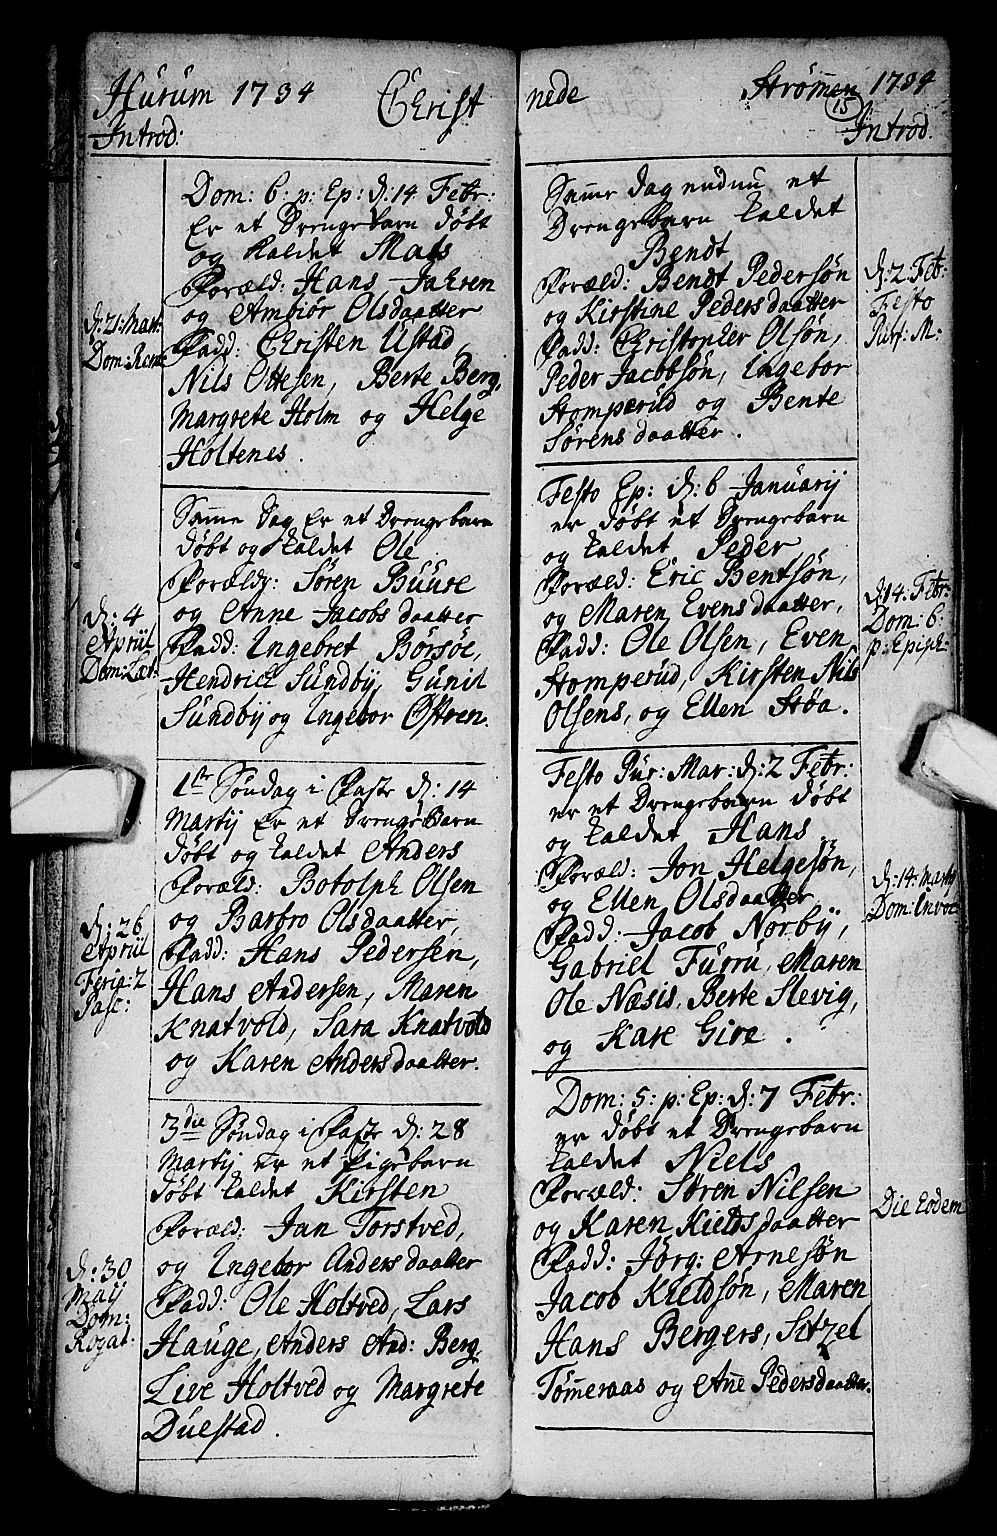 Hurum 1734
Christ
Introd:
Dom: 6: p: Ep: d: 14 Febr:
Er et Drengebarn døbt
og kaldet Mats
Foræld: Hans Jahren
og Ambiør Olsdaatter
Fadd: Christen Ustad,
Nils Ottesen, Berte Berg,
Margrete Holm og Helge
Holtenes.
d: 21: Mart:
Dom: Remi
Samme Dag Er et Drengebarn
døbt og kaldet Ole
Forældr: Søren Buuse
og Anne Jacobsdaatter
Fadd: Ingebret Børsøe,
Hendrich Sundby, Gunil
Sundbÿ og Ingebor Østven.
d: 4
Apriil
Dom: Læt:
1ste Søndag i Faste d: 14
Martÿ Er et Drengebarn
døbt og kaldet Anders
Foræld: Botolph Olsen
og Barbro Olsdaatter,
Fadd: Hans Pedersen,
Hans Andersen, Maren
Knatvold, Sara Knatvold
og Karen Andersdaatter.
d: 26
Apriil
Feria: 2
Pasc:
3die Søndag i Faste d: 28
Martÿ er et Pigebarn
døbt kaldet Kirsten
Foræld: Jan Torstved,
og Ingebor Andersdaatter
Fadd: Ole Holtved, Lars
Hauge, Anders And: Berg,
Live Holtved og Margrete
Duestad.
d: 30
Maÿ
Dom:
Rogat:
nede
Strømmen 1734
15
Introd.
Samme dag endnu et
Drengebarn kaldet
Bendt
Foræld: Bendt Pedersøn
og Kirstine Pedersdaatter
Fadd: Christopher Olsøn,
Peder Jacobsøn, Ingebor
Stomperud og Bente
Sørensdaatter.
d: 2: Feb:
Festo
Purf: M:
Festo Ep: d: 6 Januarÿ
er døbt et Drengebarn
og kaldet Peder
Foræld: Eric Bentsøn,
og Maren Evensdaatter,
Fadd: Ole Olsen, Even
Stomperud, Kirsten Nils
Olsens, og Ellen Støa.
d: 14: Febr:
Dom: 6:
p: Epiph:
Festo Pur: Mar: d: 2 Febr:
er et Drengebarn døbt
og kaldet Hans.
Foræld: Jon Helgesøn,
og Ellen Olsdaatter,
Fadd: Jacob Norbÿ,
Gabriel Furru, Maren
Ole Næsis, Berte Slevig,
og Kare Give.
d: 14: Martÿ
Dom: Invoc:
Dom: 5: p: Ep: d: 7 Febr:
er døbt et Drengebarn
kaldet Niels
Foræld: Søren Nilsen
og Karen Kieldsdaatter
Fadd: Jørg: Arnesøn
Jacob Kieldsøn, Maren
Hans Bergers, Sitzel
Tømmeraas og Anne Pedersdaatter.
Die Eodem